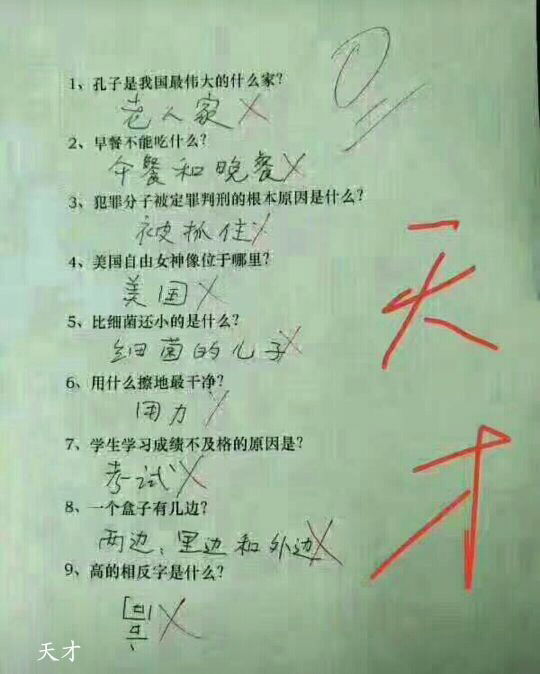 1、孔子是我国最伟大的什么家?
老人家
2、早餐不能吃什么?
午餐和晚餐
3、犯罪分子被定罪判刑的根本原因是什么?
被抓住
4、美国自由女神像位于哪里?
美国
5、比细菌还小的是什么?
细菌的儿子
6、用什么擦地最干净?
用力
7、学生学习成绩不及格的原因是?
考试
8、一个盒子有几边?
两边,里边和外边
9、高的相反字是什么?
0
天才
天才